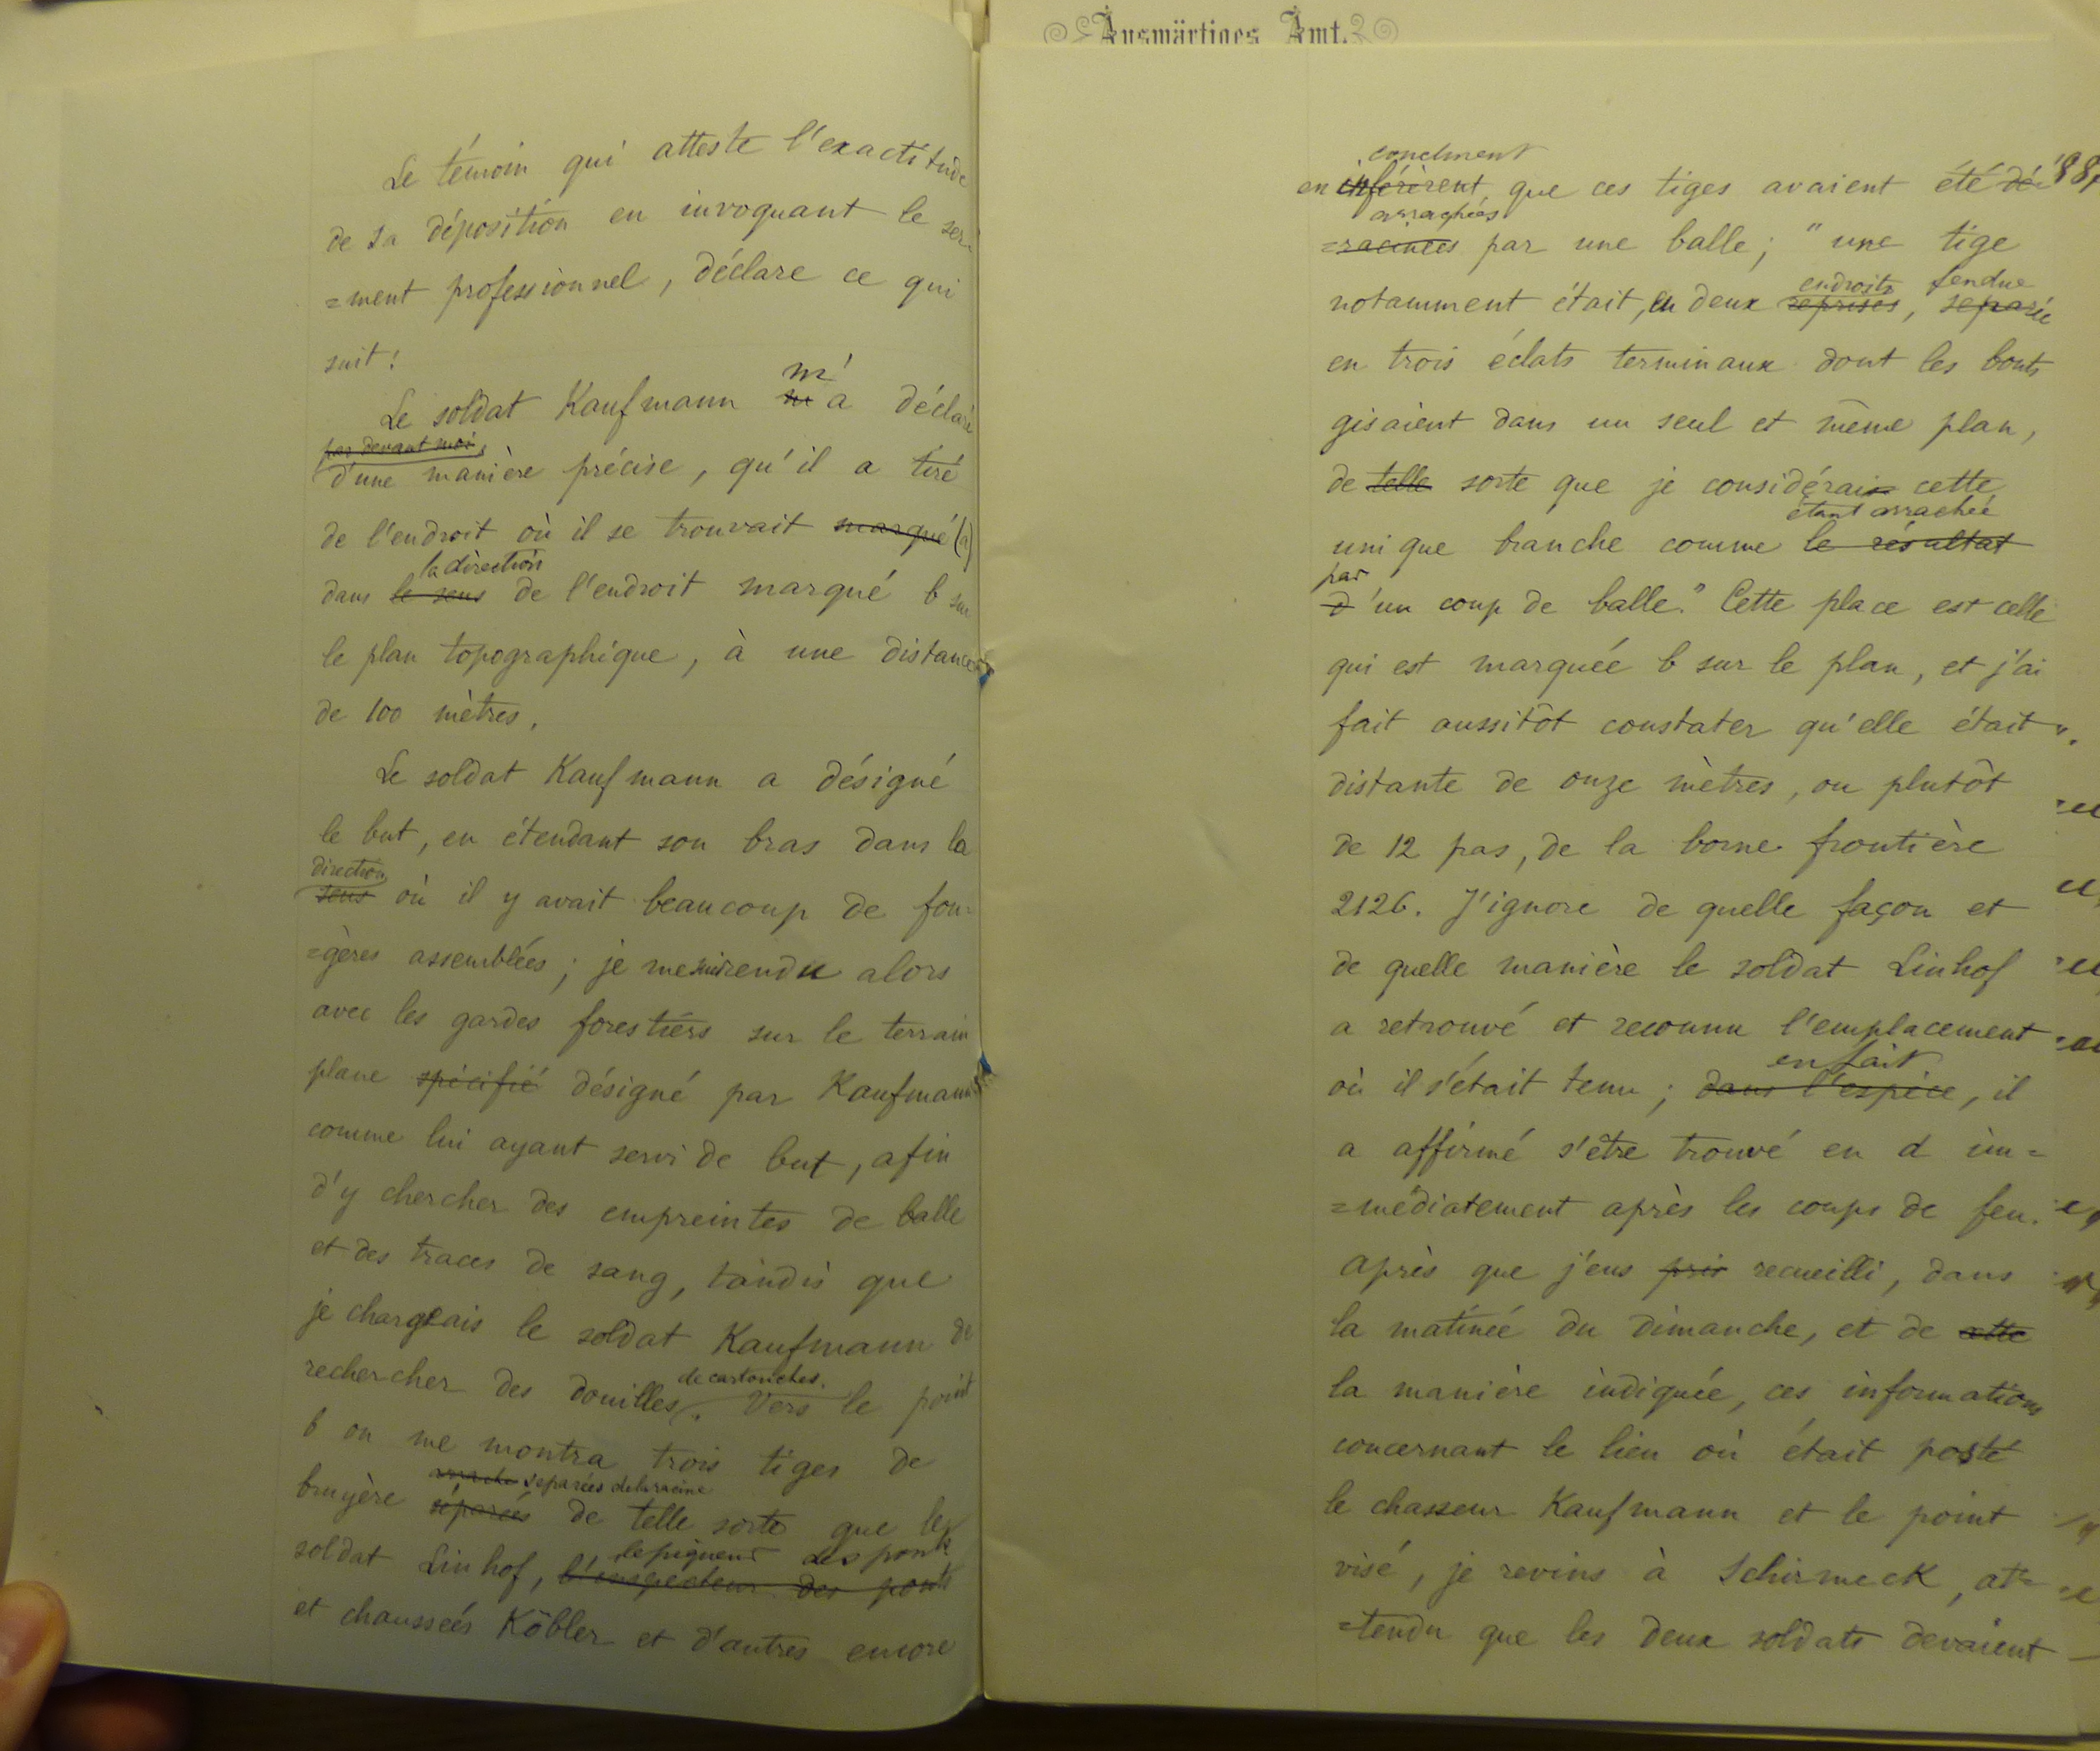 Le témoin qui atteste l'exactitude
de sa déposition en invoquant le ser-
=ment professionnel, déclare ce qui
suit:
m'
Le soldat Kaufmann m a déclaré
par devant moi,
d'une manière précise, qu'il a tiré
de l'endroit où il se trouvait marqué (a)
la direction
dans le sens de l'endroit marqué b sur
le plan topographique, à une distance
de 100 mètres.
Le soldat Kaufmann a désigné
le but, en étendant son bras dans la
direction
sens où il y avait beaucoup de fou-
=gères assemblées; je me suis rendu alors
avec les gardes forestiers sur le terrain
plane spécifié désigné par Kaufmann
comme lui ayant servi de but, afin
d'y chercher des empreintes de balle
et des traces de sang, tandis que
je chargeais le soldat Kaufmann de
rechercher des douilles. Vers le point
de cartouches.
b on me montra trois tiges de
séparées de la racine
bruyère séparées de telle sorte que le
soldat Linhof, l'inspecteur des ponts
le piqueur des ponts
et chaussées Köbler et d'autres encore
Auswärtiges Amt.
conclurent
en inférèrent que ces tiges avaient été dé-
arrachées
=racinées par une balle; "une tige
endroits fendue
notamment était, en deux reprises, séparée
en trois éclats terminaux dont les bouts
gisaient dans un seul et même plan,
de telle sorte que je considérais cette
étant arrachée
unique branche comme le résultat
par
d'un coup de balle." Cette place est celle
qui est marquée b sur le plan, et j'ai
fait aussitôt constater qu'elle était
distante de onze mètres, ou plutôt
de 12 pas, de la borne frontière
2126. J'ignore de quelle façon et
de quelle manière le soldat Linhof
a retrouvé et reconnu l'emplacement
en fait
où il s'était tenu; dans l'espèce, il
a affirmé s'être trouvé en d im=
=médiatement après les coups de feu.
Après que j'eus pris recueilli, dans
la matinée du dimanche, et de cette
la manière indiquée, ces informations
concernant le lieu où était posté
le chasseur Kaufmann et le point
visé, je revins à Schirmeck, at=
=tendu que les deux soldats devaient